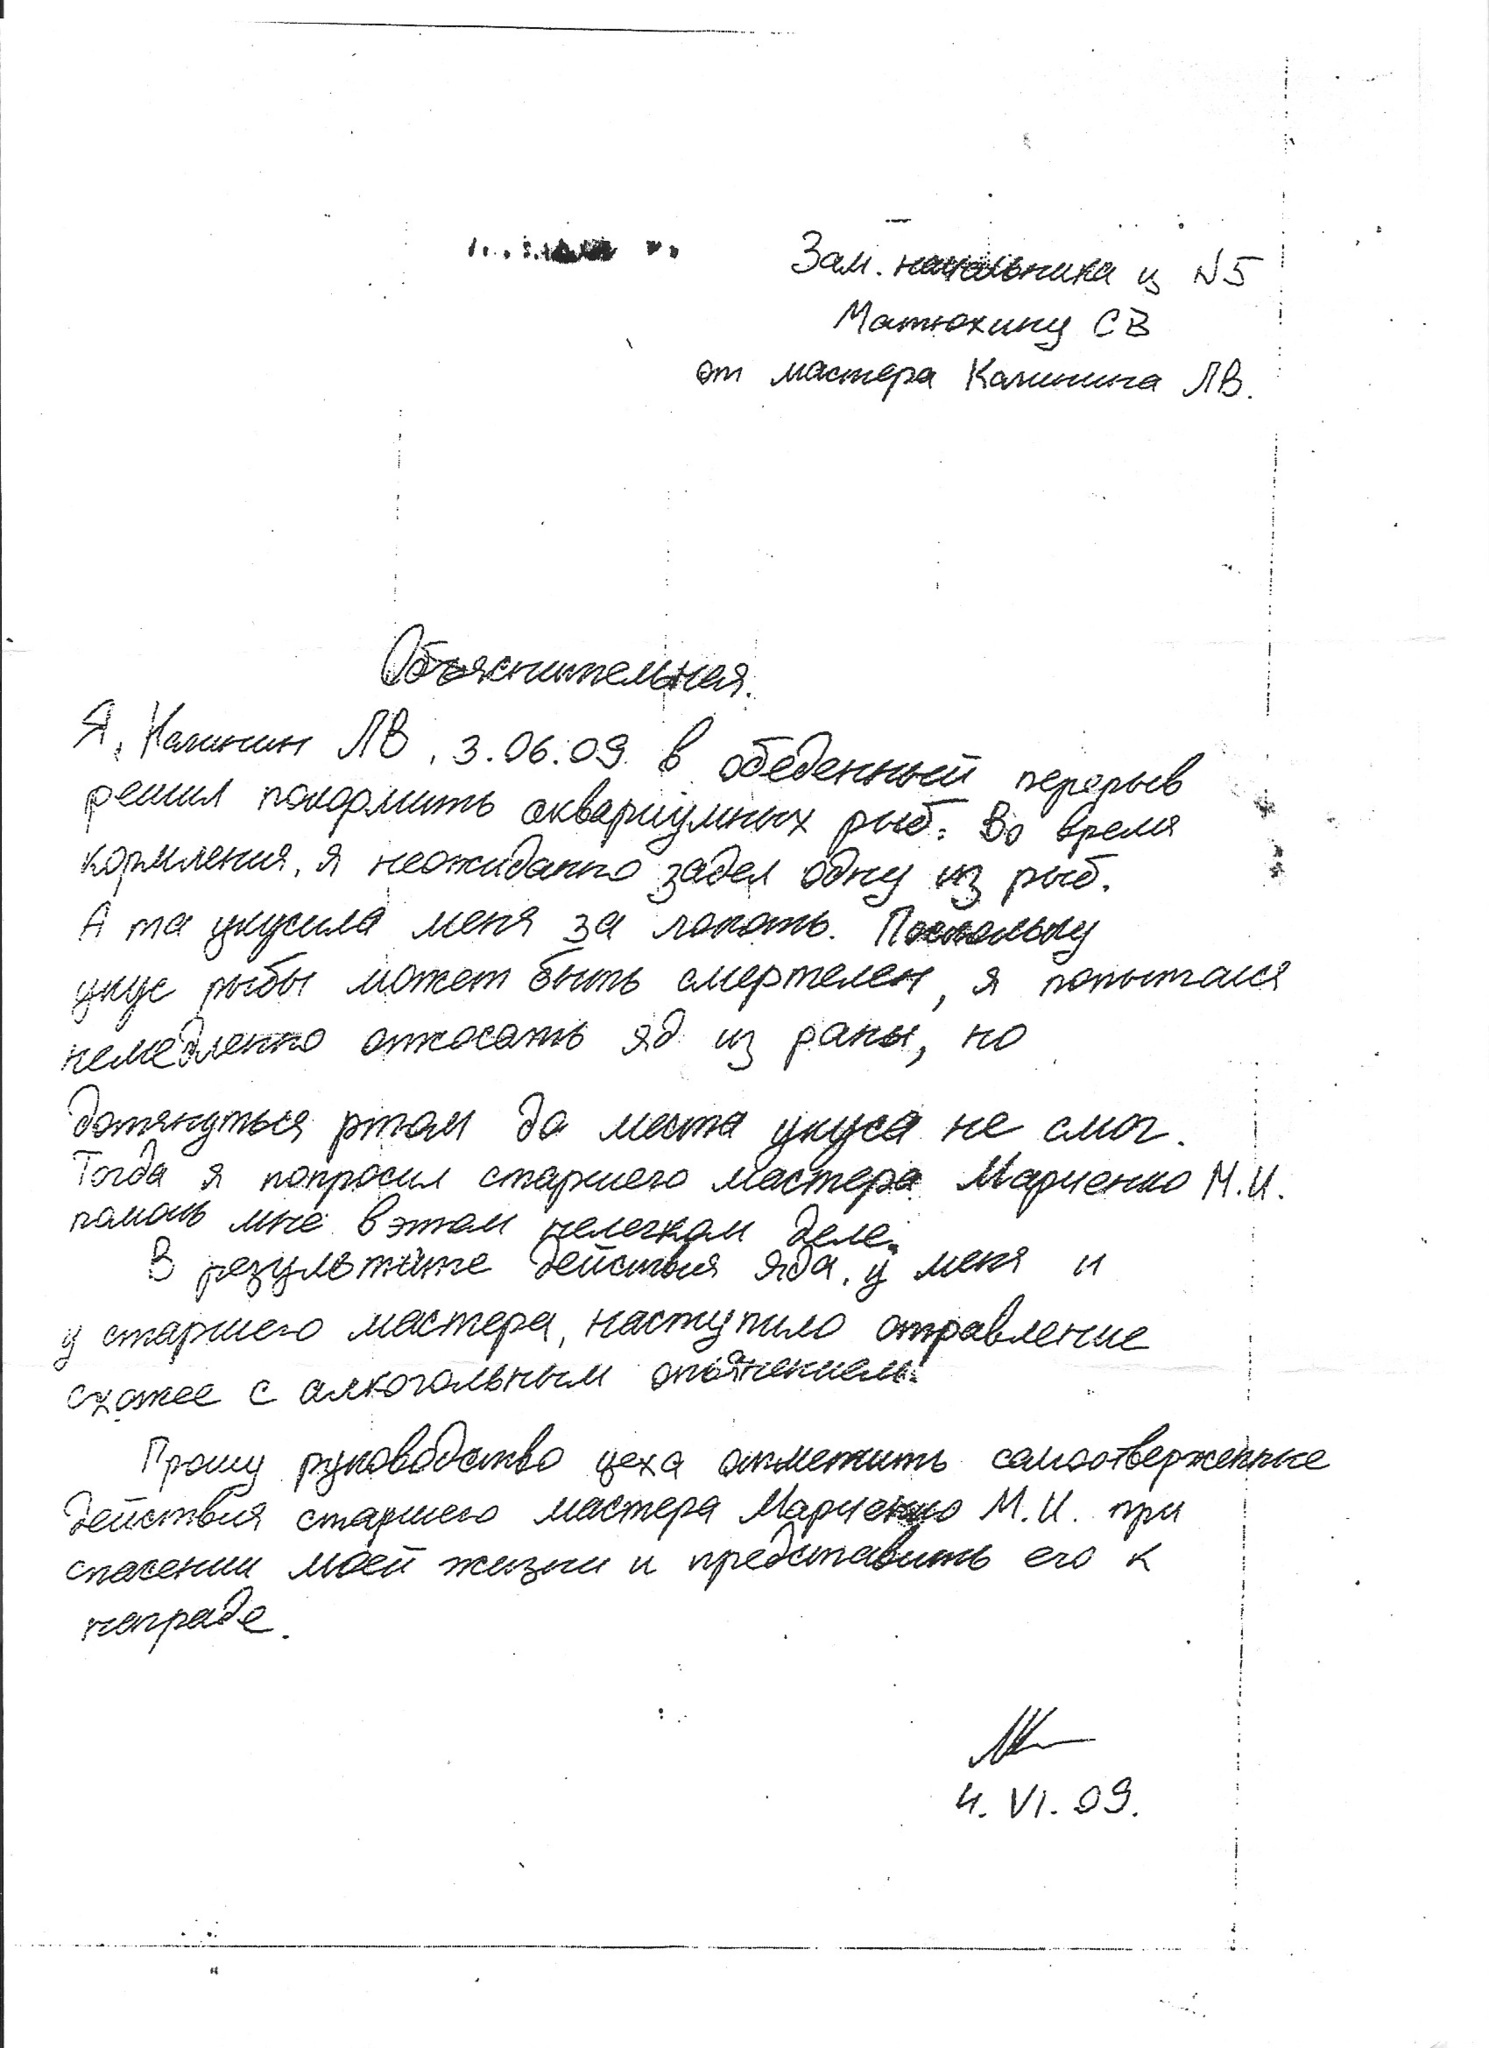 Зам. начальника ц №5
Матюхину СВ
от мастера Калинина ЛВ.
Объяснительная.
Я, Калинин ЛВ, 3.06.09. в обеденный перерыв
решил покормить аквариумных рыб. Во время
кормления, я неожиданно задел одну из рыб.
А та укусила меня за локоть. Поскольку
укус рыбы может быть смертелен, я попытался
немедленно откосать яд из раны, но
дотянуться ртом до места укуса не смог.
Тогда я попросил старшего мастера Марченко М.И.
помочь мне в этом нелегком деле.
В результате действия яда, у меня и
у старшего мастера, наступило отравление
схожее с алкогольным опьянением.
Прошу руководство цеха отметить самоотверженные
действия старшего мастера Марченко М.И. при
спасении моей жизни и представить его к
награде.
4.VI.09.